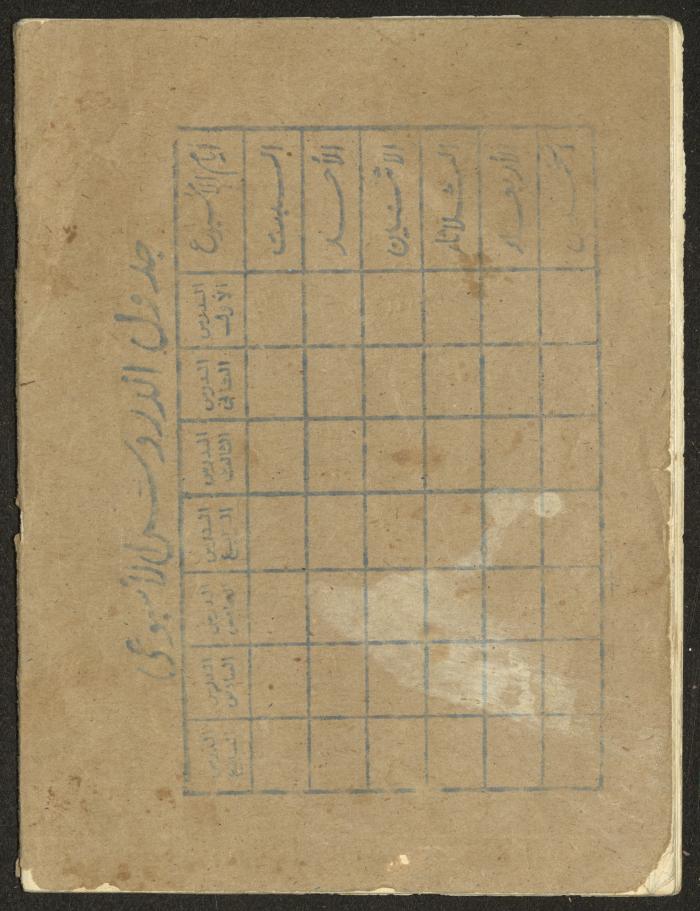 جدول الدروس الأسبوعي
أيام الأسبوع
الدرس الأول
الدرس الثاني
الدرس الثالث
الدرس الرابع
الدرس الخامس
الدرس السادس
الدرس السابع
السبت
الأحد
الاثنين
الثلاثاء
الأربعاء
الخميس